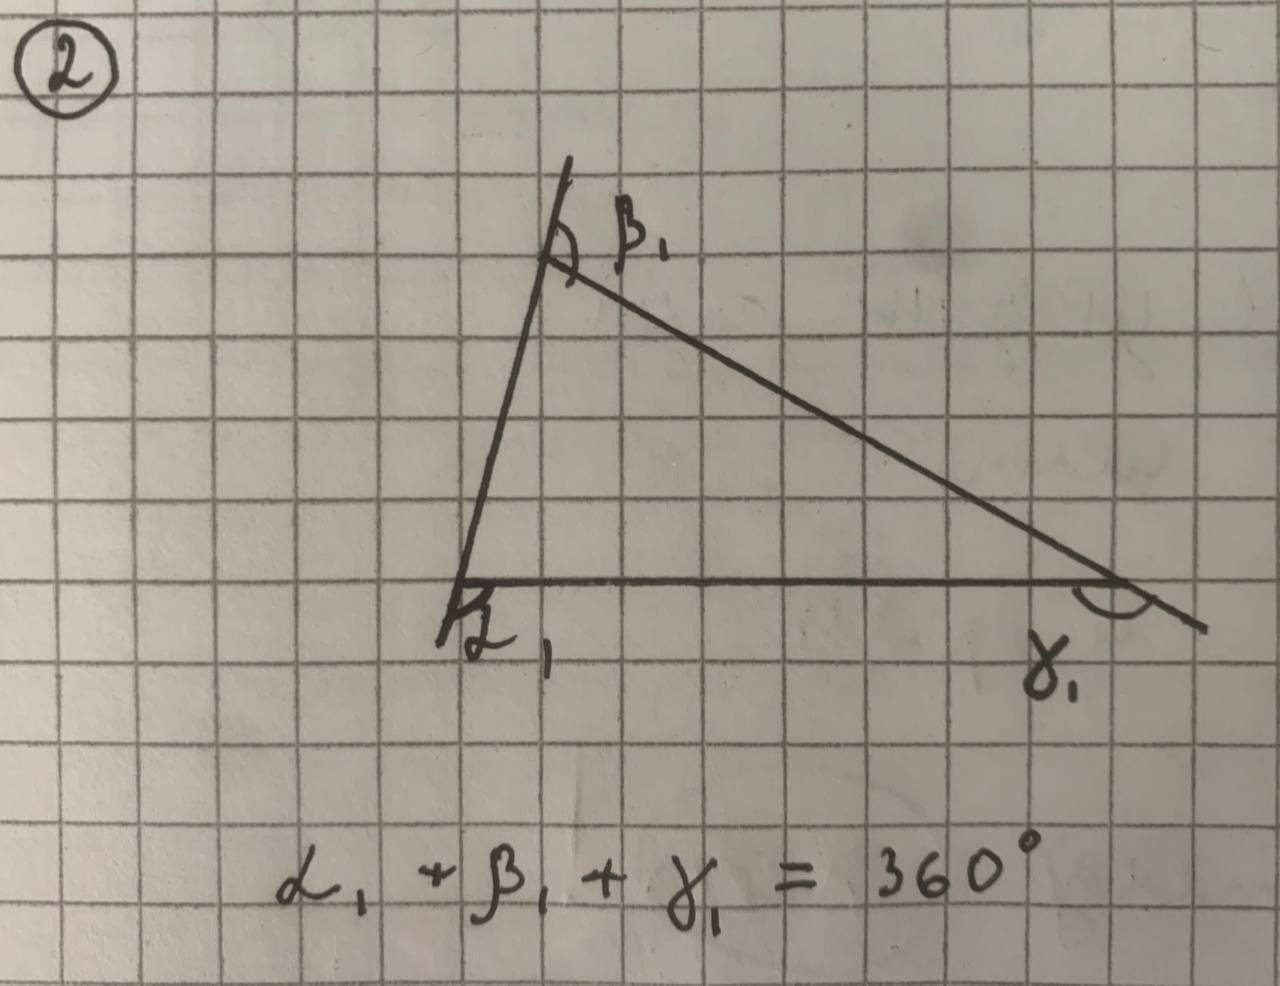 2
β₁
α₁
γ₁
α₁ + β₁ + γ₁ = 360°